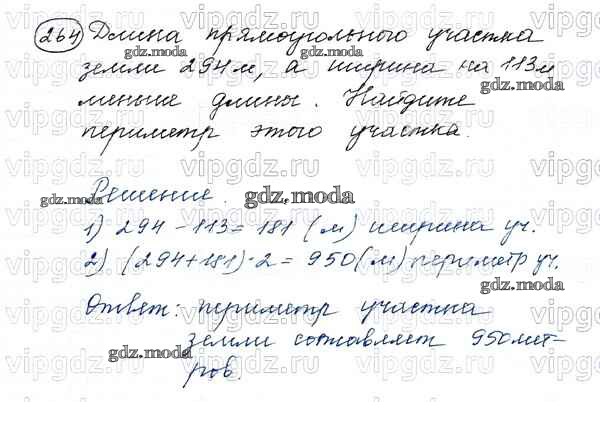 264 Длина прямоугольного участка
земли 294 м, а ширина на 113 м
меньше длины. Найдите
периметр этого участка.
Решение.
1) 294 - 113 = 181 (м) ширина уч.
2) (294 + 181) · 2 = 950 (м) периметр уч.
Ответ: периметр участка
земли составляет 950 мет-
ров.